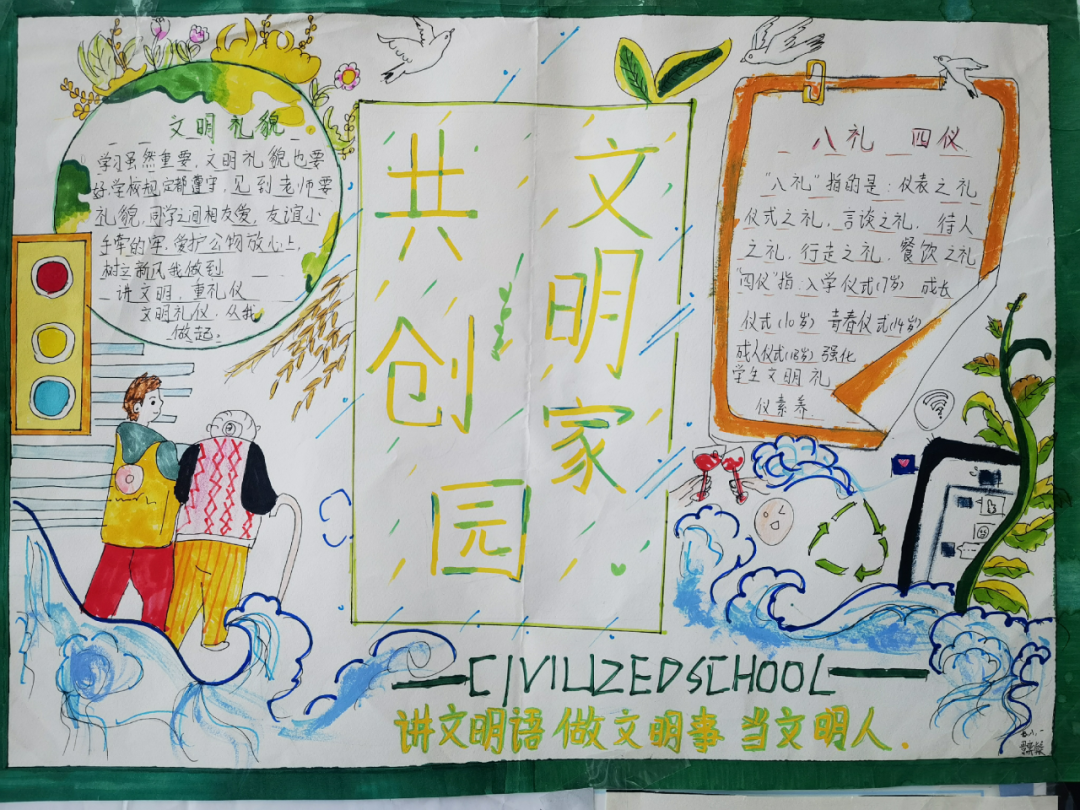 文明礼貌
学习虽然重要，文明礼貌也要
好，学校规定都遵守，见到老师要
礼貌，同学之间相友爱，友谊小
手牵的牢，爱护公物放心上，
树立新风我做到
讲文明，重礼仪
文明礼仪，从我
做起。
共创
文明家
园
八礼 四仪
"八礼"指的是：仪表之礼
仪式之礼，言谈之礼，待人
之礼，行走之礼，餐饮之礼
"四仪"指：入学仪式(7岁) 成长
仪式(10岁) 青春仪式(14岁)
成人仪式(18岁) 强化
学生文明礼
仪素养.
CIVILIZED SCHOOL
讲文明语 做文明事 当文明人.